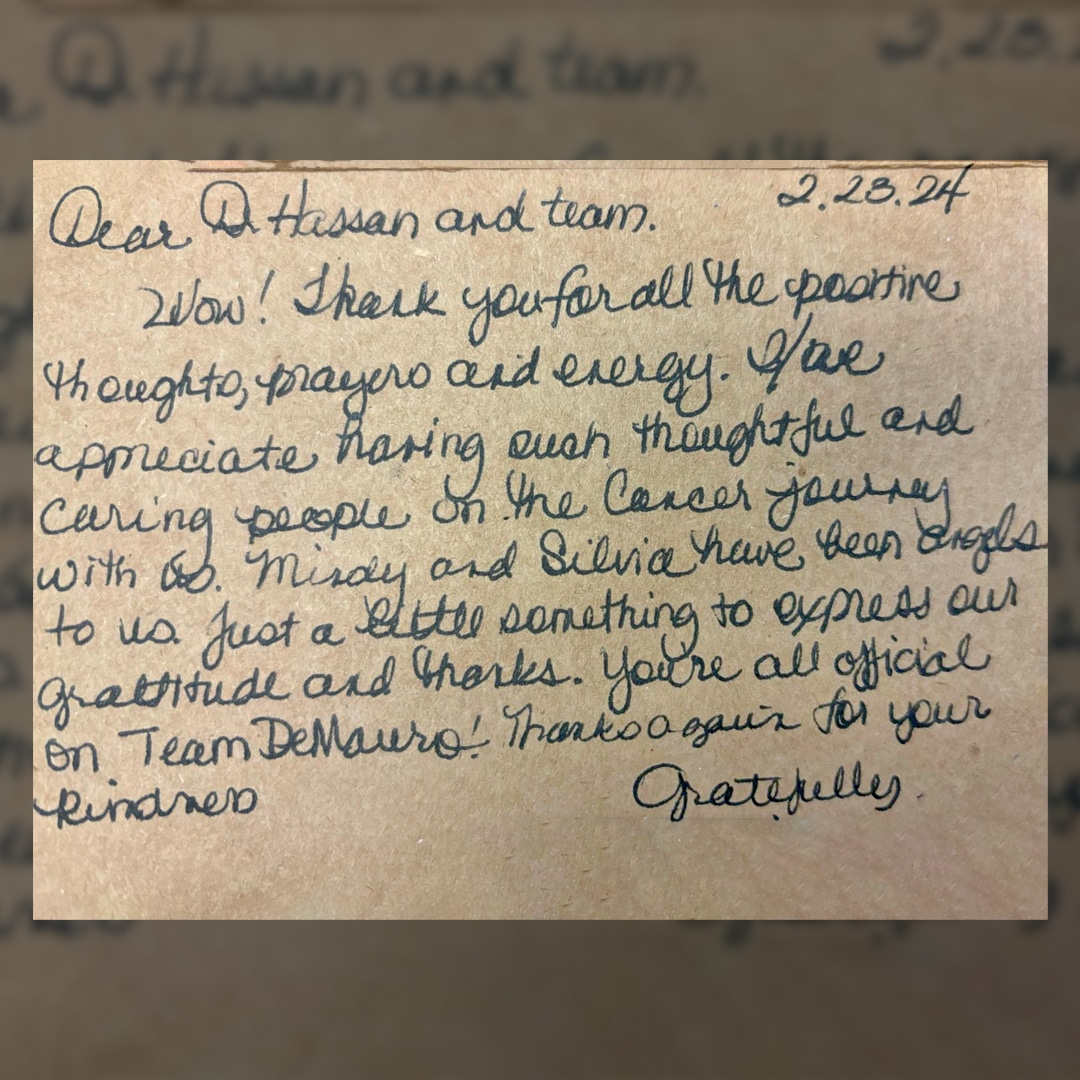 2.23.24
Dear D. Hassan and team.
Wow! Thank you for all the positive
thoughts, prayers and energy. I/we
appreciate having such thoughtful and
caring people on the Cancer journey
with us. Mindy and Silvia have been angels
to us. Just a little something to express our
gratitude and thanks. You're all official
on Team DeMauro! Thanks again for your
kindness
Gratefully,